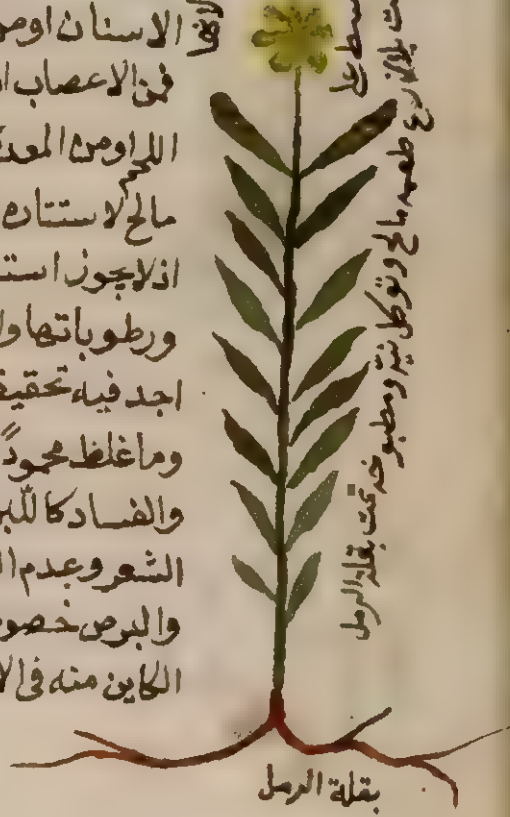 الاسنان اومن
فمن الاعصاب ا
اللحم اومن المعد
مالح لاستتاره
اذ لا يجوز است
ورطوباتها ولا
اجد فيه تحقيق
وما غلظ محموداً
والفساد كاللبن
الشعر وعدم ا
والبرص خصو
الكاين منه في الا
طعمه مالح وتوكل نية ومطبوخة تمت بقلة الرمل
بقلة الرمل